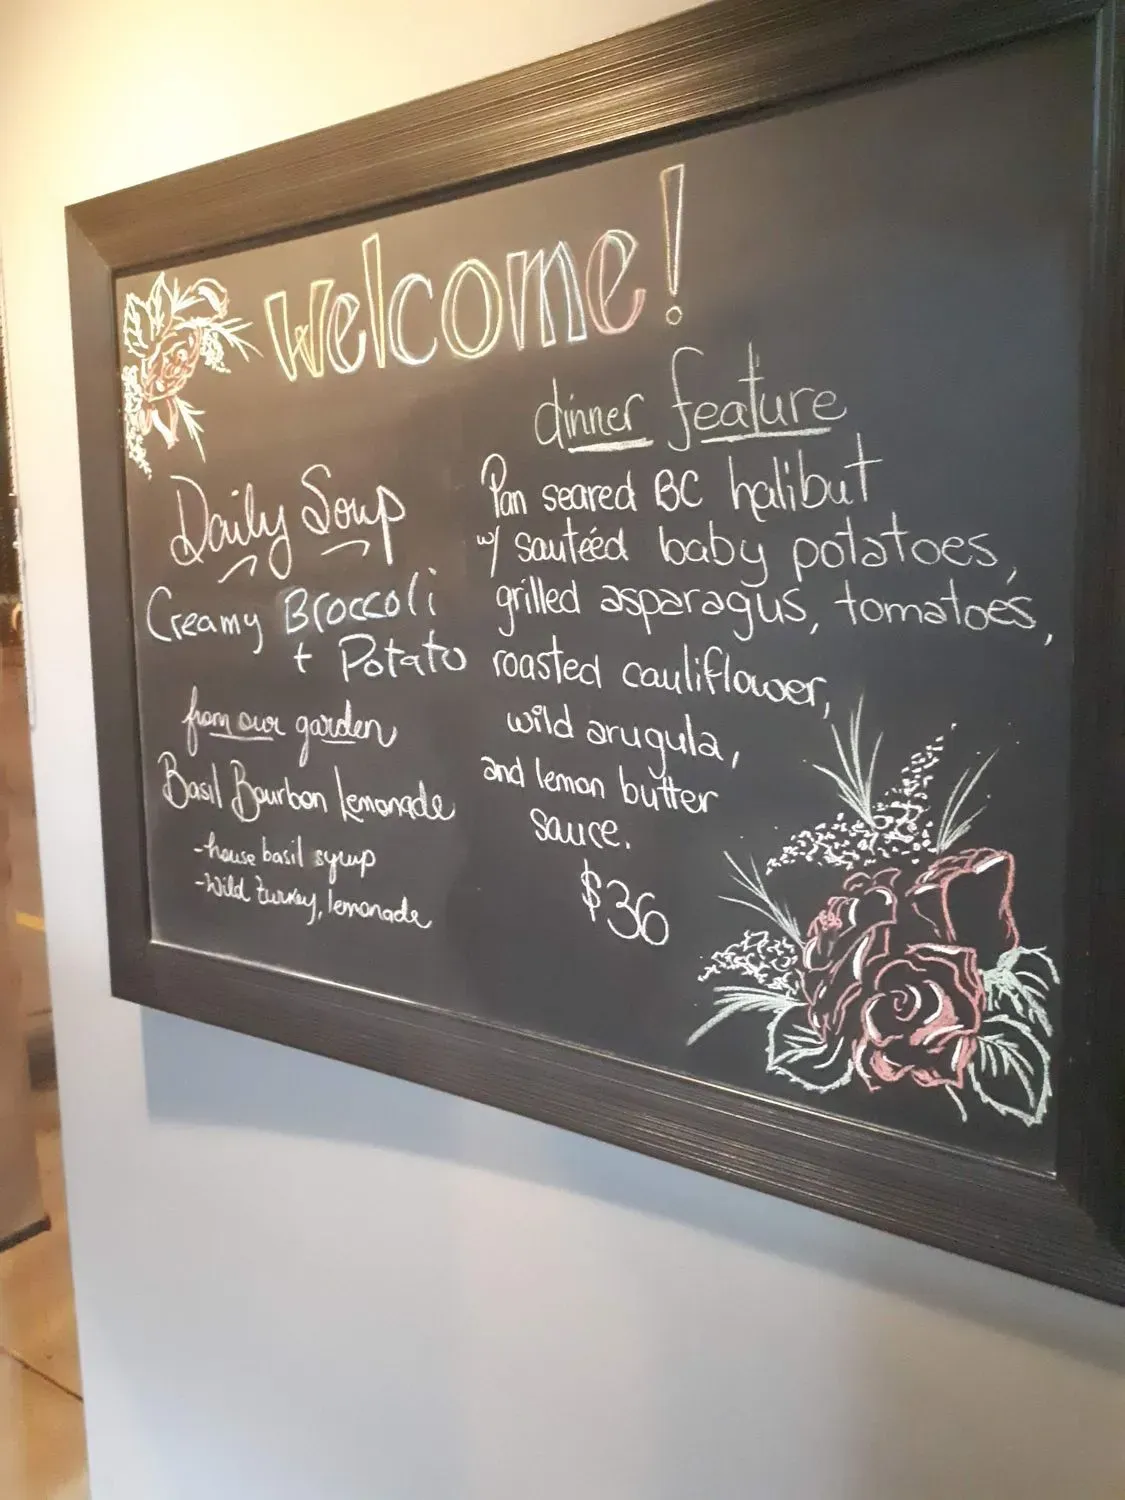 Welcome!
Daily Soup
Creamy Broccoli
+ Potato
from our garden
Basil Bourbon Lemonade
-house basil syrup
-wild turkey, lemonade
dinner feature
Pan seared BC halibut
w/ sautéed baby potatoes,
grilled asparagus, tomatoes,
roasted cauliflower,
wild arugula,
and lemon butter
sauce.
$36